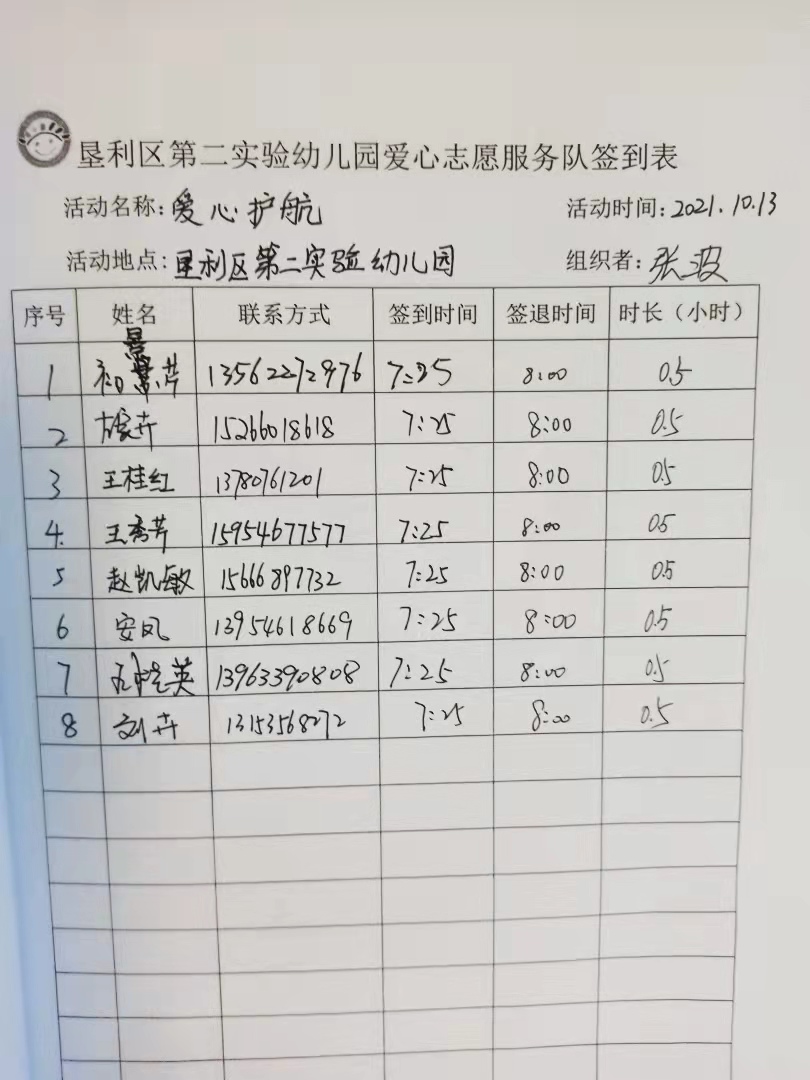 垦利区第二实验幼儿园爱心志愿服务队签到表
活动名称：爱心护航 活动时间：2021.10.13
活动地点：垦利区第二实验幼儿园 组织者：张波
序号 姓名 联系方式 签到时间 签退时间 时长（小时）
1 初景芹 13562272976 7:25 8:00 0.5
2 15266018618 7:25 8:00 0.5
3 王桂红 13780761201 7:25 8:00 0.5
4. 王秀芹 15954677577 7:25 8:00 0.5
5 赵凯敏 15666897732 7:25 8:00 0.5
6 安凤 13954618669 7:25 8:00 0.5
7 13963390808 7:25 8:00 0.5
8 刘卉 13153568272 7:25 8:00 0.5